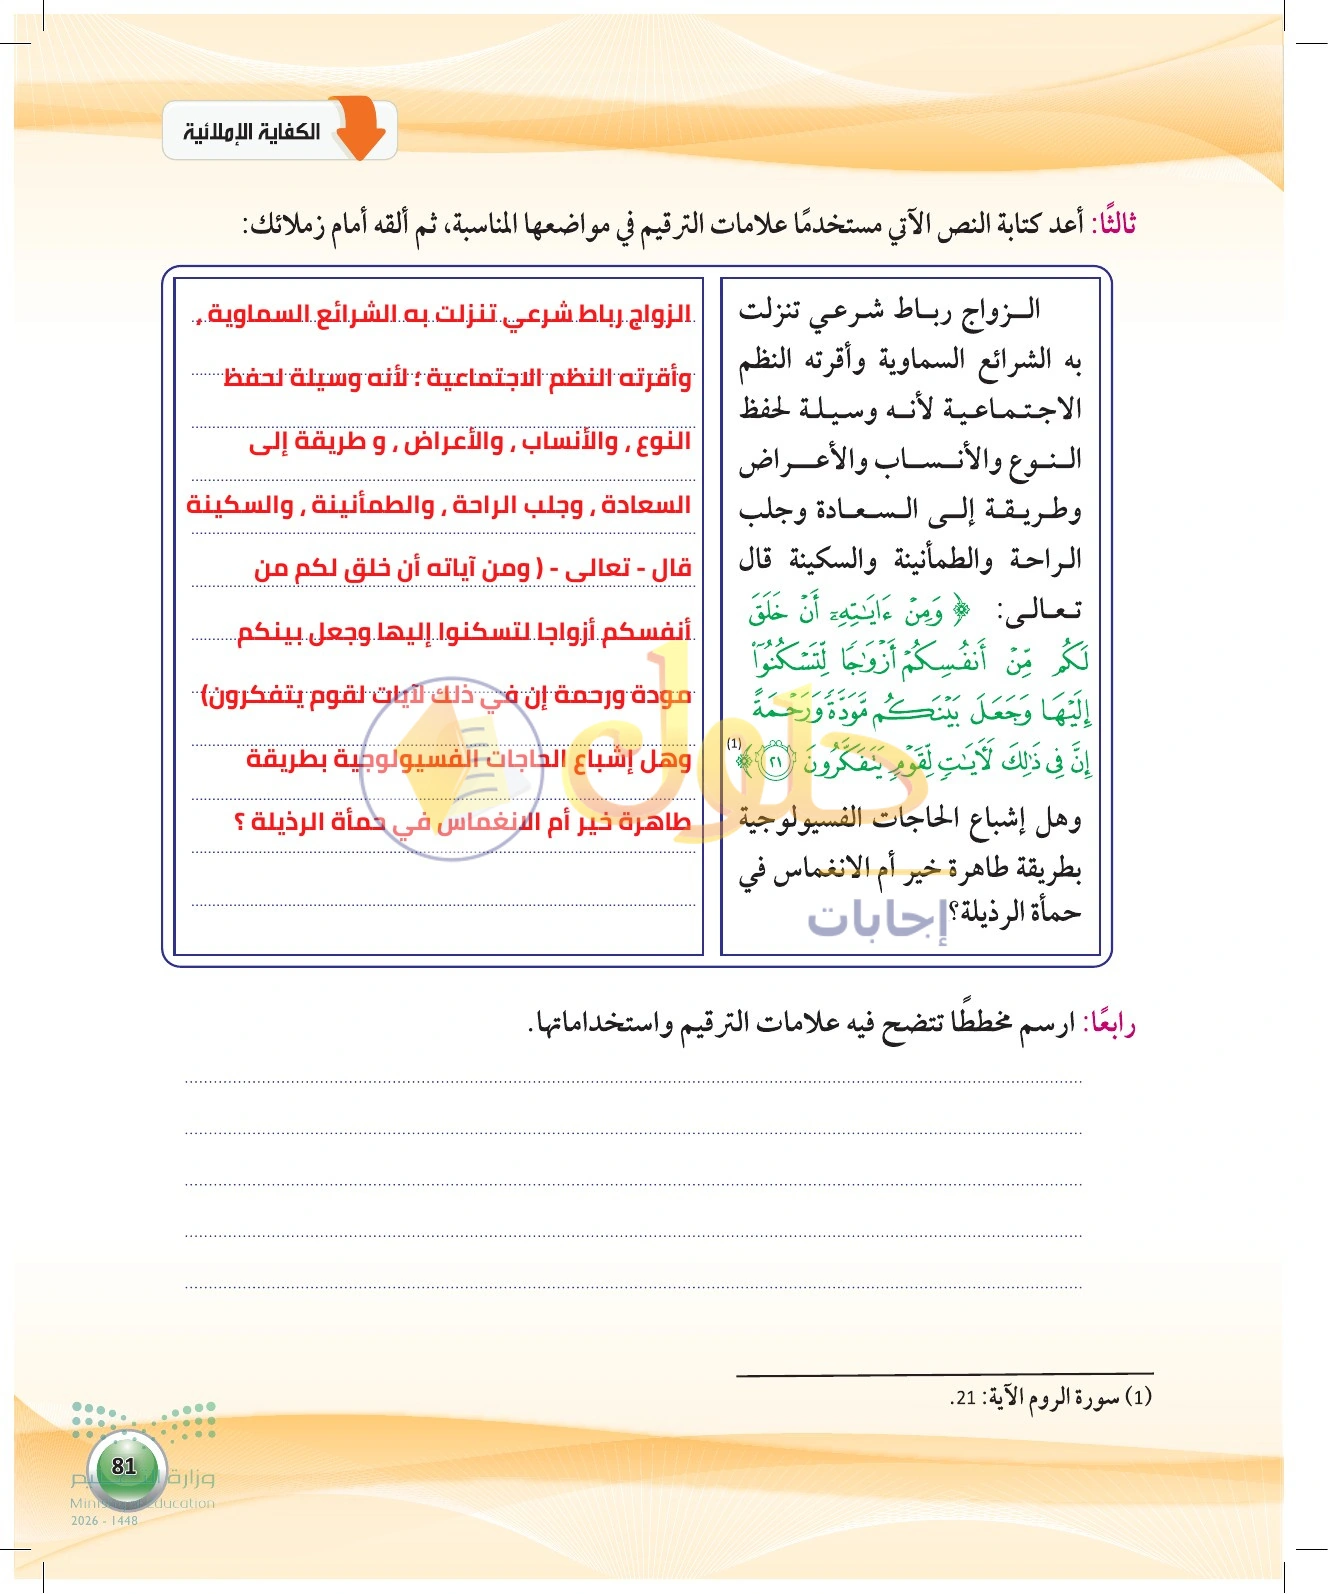 الكفاية الإملائية
ثالثًا: أعد كتابة النص الآتي مستخدمًا علامات الترقيم في مواضعها المناسبة، ثم ألقه أمام زملائك:
الـزواج ربـاط شـرعـي تنزلت
به الشرائع السماوية وأقرته النظم
الاجـتـمـاعـيـة لأنـه وسـيـلـة لحفظ
الـنـوع والأنـسـاب والأعـــراض
وطـريـقـة إلـى الـسـعـادة وجلب
الراحة والطمأنينة والسكينة قال
تـعـالـى: ﴿ وَمِنْ ءَايَـٰتِهِۦٓ أَنْ خَلَقَ
لَكُم مِّنْ أَنفُسِكُمْ أَزْوَٰجًا لِّتَسْكُنُوٓا۟
إِلَيْهَا وَجَعَلَ بَيْنَكُم مَّوَدَّةً وَرَحْمَةً
إِنَّ فِى ذَٰلِكَ لَـَٔايَـٰتٍ لِّقَوْمٍ يَتَفَكَّرُونَ ٢١ ﴾(1)
وهل إشباع الحاجات الفسيولوجية
بطريقة طاهرة خير أم الانغماس في
حمأة الرذيلة؟
الزواج رباط شرعي تنزلت به الشرائع السماوية ,
وأقرته النظم الاجتماعية ؛ لأنه وسيلة لحفظ
النوع , والأنساب , والأعراض , و طريقة إلى
السعادة , وجلب الراحة , والطمأنينة , والسكينة
قال - تعالى - ( ومن آياته أن خلق لكم من
أنفسكم أزواجا لتسكنوا إليها وجعل بينكم
مودة ورحمة إن في ذلك لآيات لقوم يتفكرون)
وهل إشباع الحاجات الفسيولوجية بطريقة
طاهرة خير أم الانغماس في حمأة الرذيلة ؟
حلول
إجابات
رابعًا: ارسم مخططًا تتضح فيه علامات الترقيم واستخداماتها.
(1) سورة الروم الآية: 21.
81
وزارة التعليم
Ministry of Education
2026 - 1448